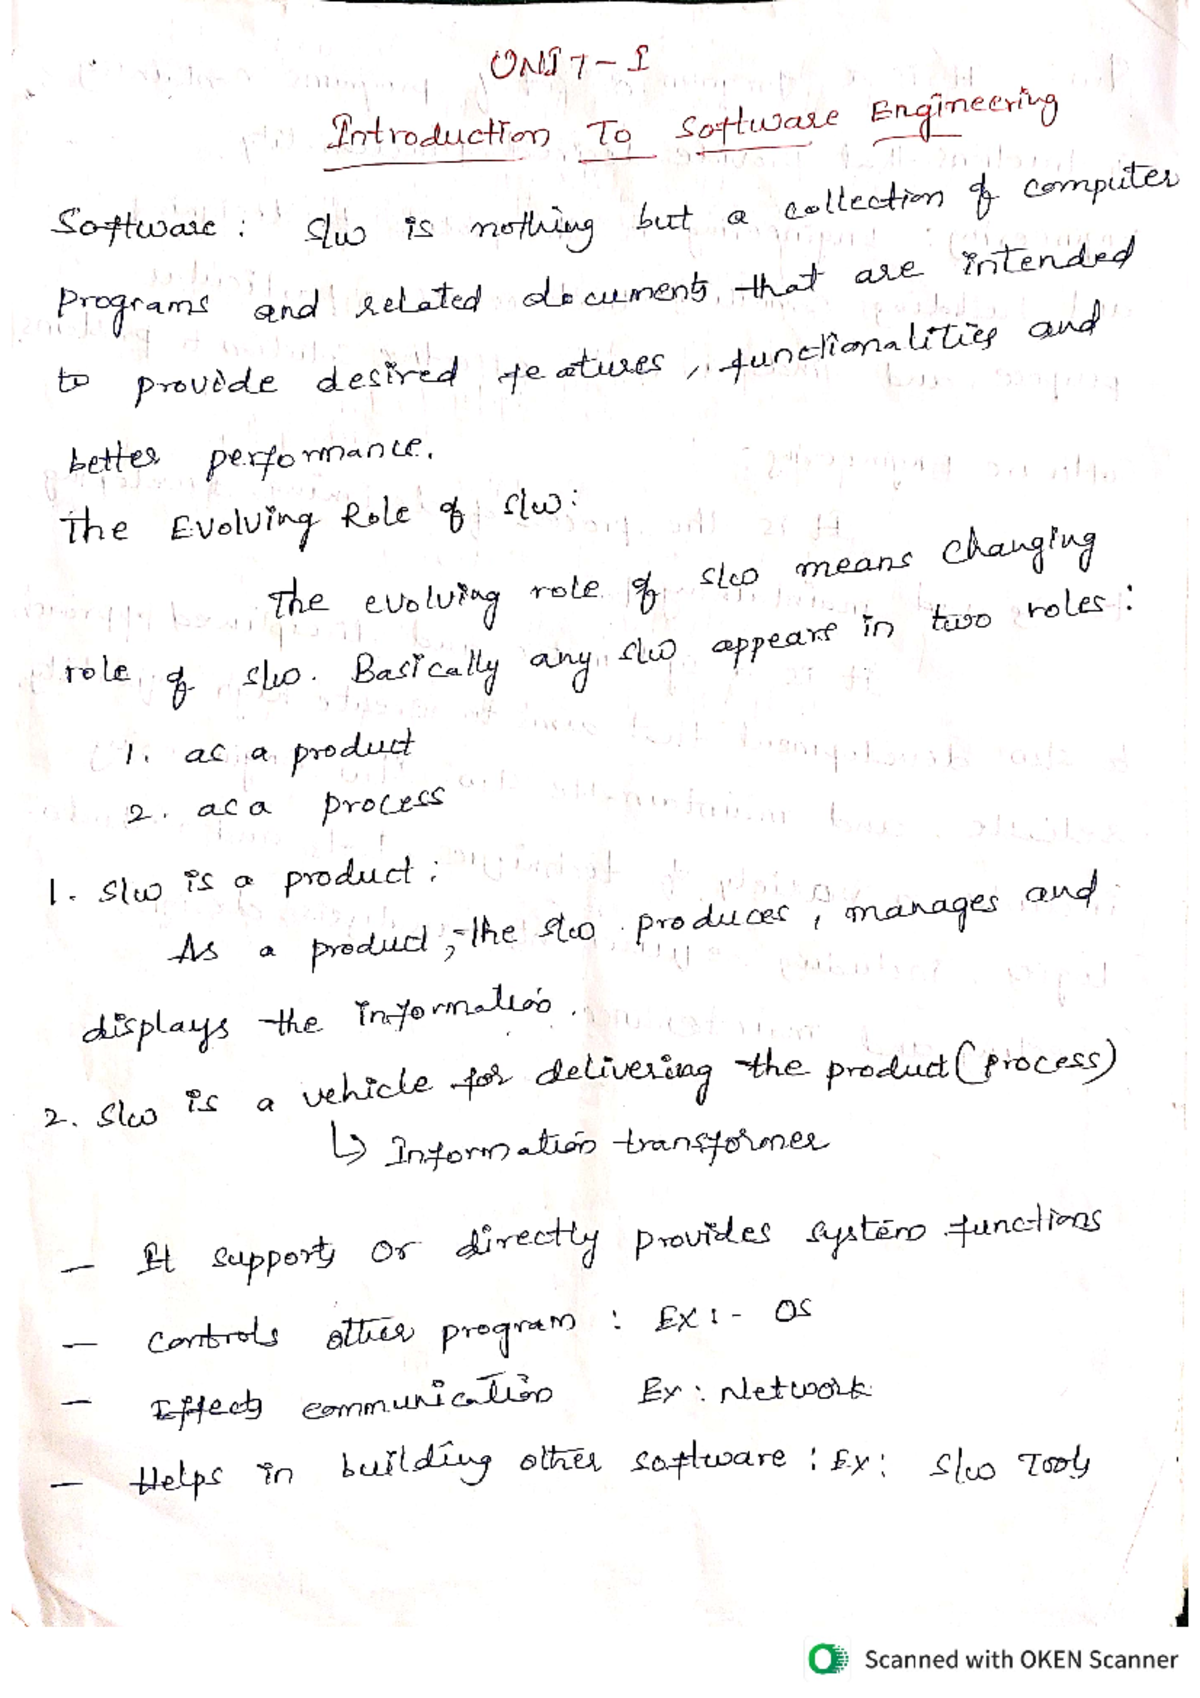 UNIT-I
Introduction To Software Engineering
Software: S/w is nothing but a collection of computer
programs and related documents that are intended
to provide desired features, functionalities and
better performance.
The Evolving Role of S/w:
The evolving role of S/w means changing
role of S/w. Basically any S/w appears in two roles:
1. as a product
2. as a process
1. S/w is a product:
As a product, the S/w produces, manages and
displays the information.
2. S/w is a vehicle for delivering the product (process)
↳ Information transformer
— It supports or directly provides system functions
— Controls other program : Ex:- OS
— Effects communication Ex: Network
— Helps in building other software : Ex: S/w Tools
Scanned with OKEN Scanner